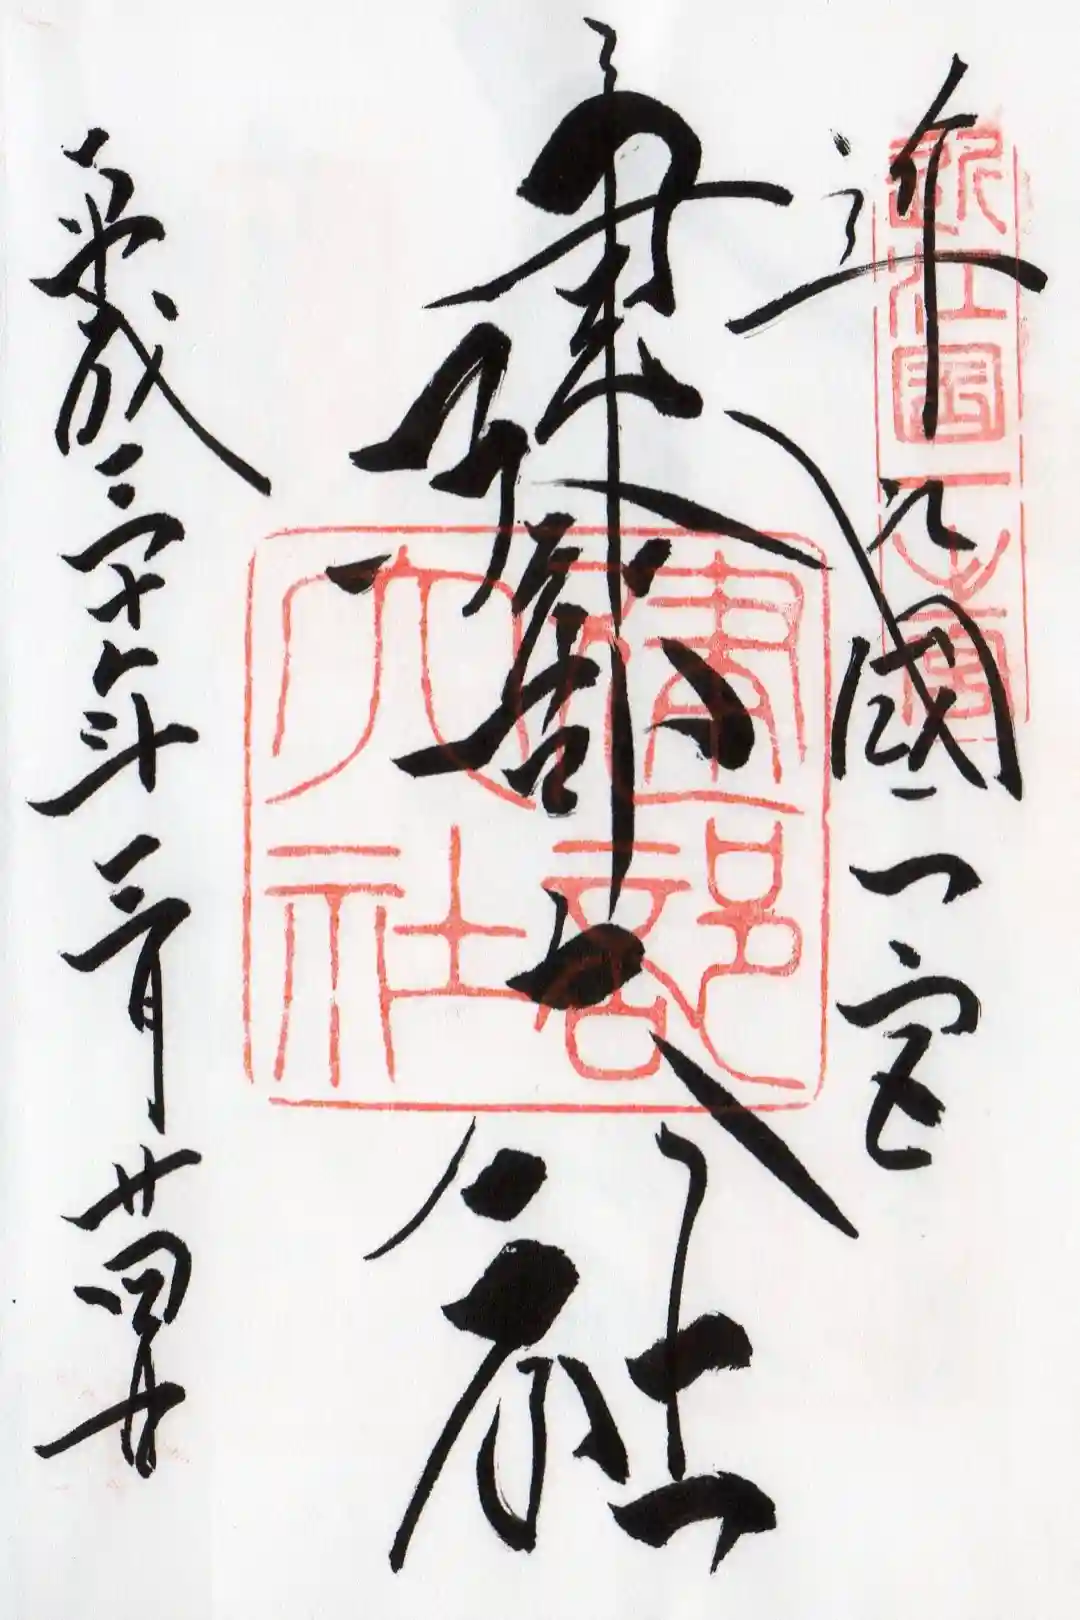 近江國一之宮
近江國一宮
建部大社
建部大社
平成三十年三月廿四日